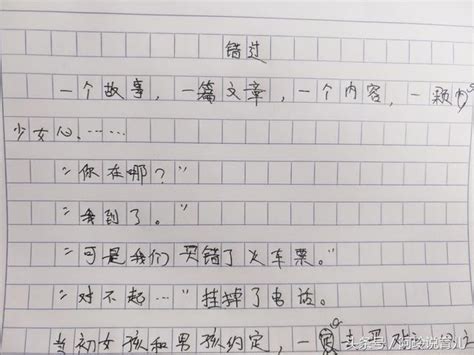 错过
一个故事，一篇文章，一个内容，一颗
少女心……
“你在哪？”
“我到了。”
“可是我们买错了火车票。”
“对不起…”挂掉了电话。
当初女孩和男孩约定，一
头条号